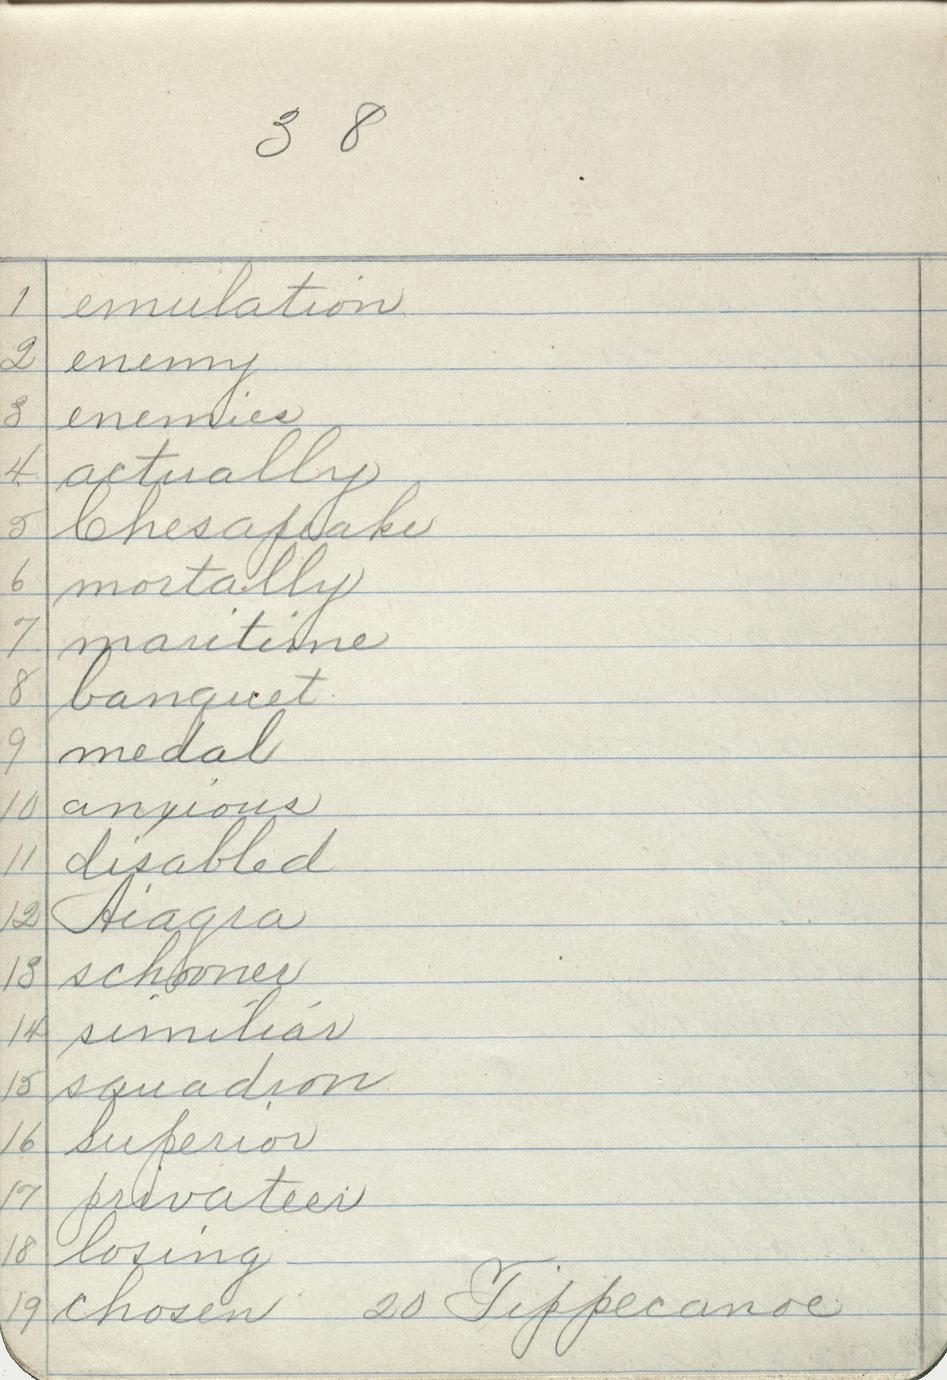 3 8
1 emulation
2 enemy
3 enemies
4 actually
5 Chesapeake
6 mortally
7 maritime
8 banquet
9 medal
10 anxious
11 disabled
12 Niagra
13 schooner
14 similiar
15 squadron
16 superior
17 privateer
18 losing
19 chosen 20 Tippecanoe